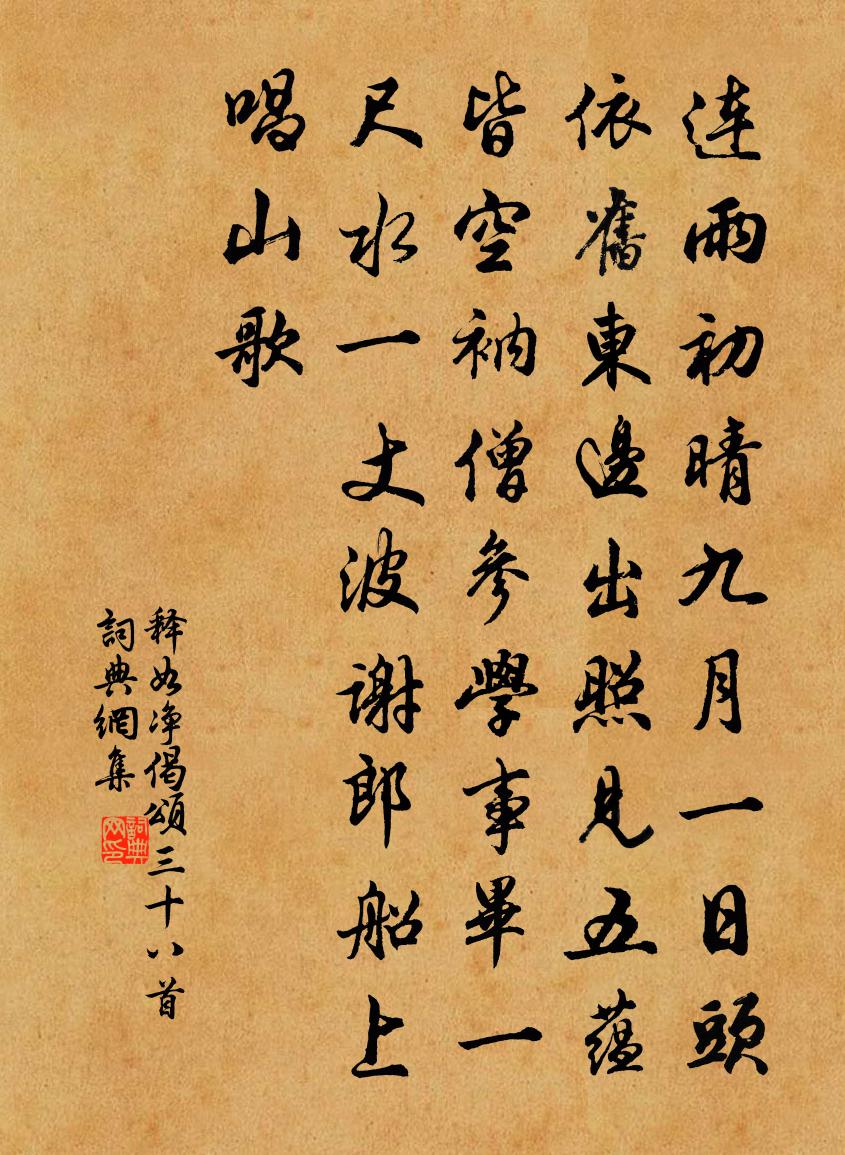 連雨初晴九月一日頭
依舊東邊出照見五蘊
皆空衲僧參學事畢一
尺水一丈波謝郎船上
唱山歌
释如净偈頌三十八首
詞典網集
詞典網印